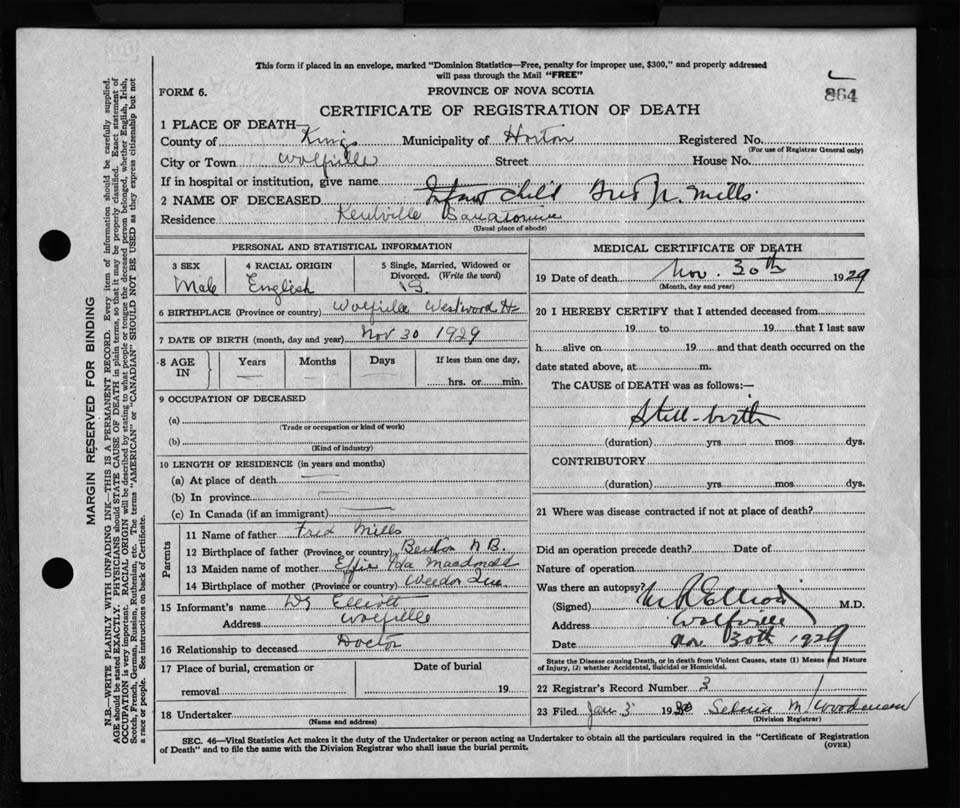 This form if placed in an envelope, marked "Dominion Statistics—Free, penalty for improper use, $300," and properly addressed
will pass through the Mail "FREE"
FORM 6.
PROVINCE OF NOVA SCOTIA
864
CERTIFICATE OF REGISTRATION OF DEATH
1 PLACE OF DEATH—
County of Kings Municipality of Horton Registered No.
(For use of Registrar General only)
City or Town Wolfville Street House No.
If in hospital or institution, give name
2 NAME OF DECEASED Infant child Mills
Residence Kentville
(Usual place of abode)
PERSONAL AND STATISTICAL INFORMATION
3 SEX 4 RACIAL ORIGIN 5 Single, Married, Widowed or
Divorced. (Write the word)
Male English S.
6 BIRTHPLACE (Province or country) Wolfville Westwood
7 DATE OF BIRTH (month, day and year) Nov 30 1929
8 AGE IN Years Months Days If less than one day,
hrs. or min.
9 OCCUPATION OF DECEASED
(a)
(Trade or occupation or kind of work)
(b)
(Kind of industry)
10 LENGTH OF RESIDENCE (in years and months)
(a) At place of death
(b) In province
(c) In Canada (if an immigrant)
Parents
11 Name of father Fred Mills
12 Birthplace of father (Province or country) Benton N B.
13 Maiden name of mother Effie
14 Birthplace of mother (Province or country) Weedon Que
15 Informant's name Dr Elliott
Address Wolfville
16 Relationship to deceased Doctor
17 Place of burial, cremation or Date of burial
removal 19
18 Undertaker
(Name and address)
MEDICAL CERTIFICATE OF DEATH
19 Date of death Nov. 30th 1929
(Month, day and year)
20 I HEREBY CERTIFY that I attended deceased from
19 to 19 that I last saw
h alive on 19 and that death occurred on the
date stated above, at m.
The CAUSE of DEATH was as follows:—
Still-birth
(duration) yrs. mos. dys.
CONTRIBUTORY
(duration) yrs. mos. dys.
21 Where was disease contracted if not at place of death?
Did an operation precede death? Date of
Nature of operation
Was there an autopsy?
(Signed) Elliott M.D.
Address Wolfville
Date Nov 30th 1929
State the Disease causing Death, or in death from Violent Causes, state (1) Means and Nature
of Injury, (2) whether Accidental, Suicidal or Homicidal.
22 Registrar's Record Number 3
23 Filed Jan 3 1930 Selmia M.
(Division Registrar)
SEC. 46—Vital Statistics Act makes it the duty of the Undertaker or person acting as Undertaker to obtain all the particulars required in the "Certificate of Registration
of Death" and to file the same with the Division Registrar who shall issue the burial permit. (OVER)
MARGIN RESERVED FOR BINDING
N.B.—WRITE PLAINLY WITH UNFADING INK—THIS IS A PERMANENT RECORD. Every item of information should be carefully supplied.
AGE should be stated EXACTLY. PHYSICIANS should STATE CAUSE OF DEATH in plain terms, so that it may be properly classified. Exact statement of
OCCUPATION is very important. RACIAL ORIGIN will be described by stating to what people or tongue the deceased person belonged, whether English, Irish,
Scotch, French, German, Russian, Ruthenian, etc. The terms "AMERICAN" or "CANADIAN" SHOULD NOT BE USED as they express citizenship but not
a race or people. See instructions on back of Certificate.